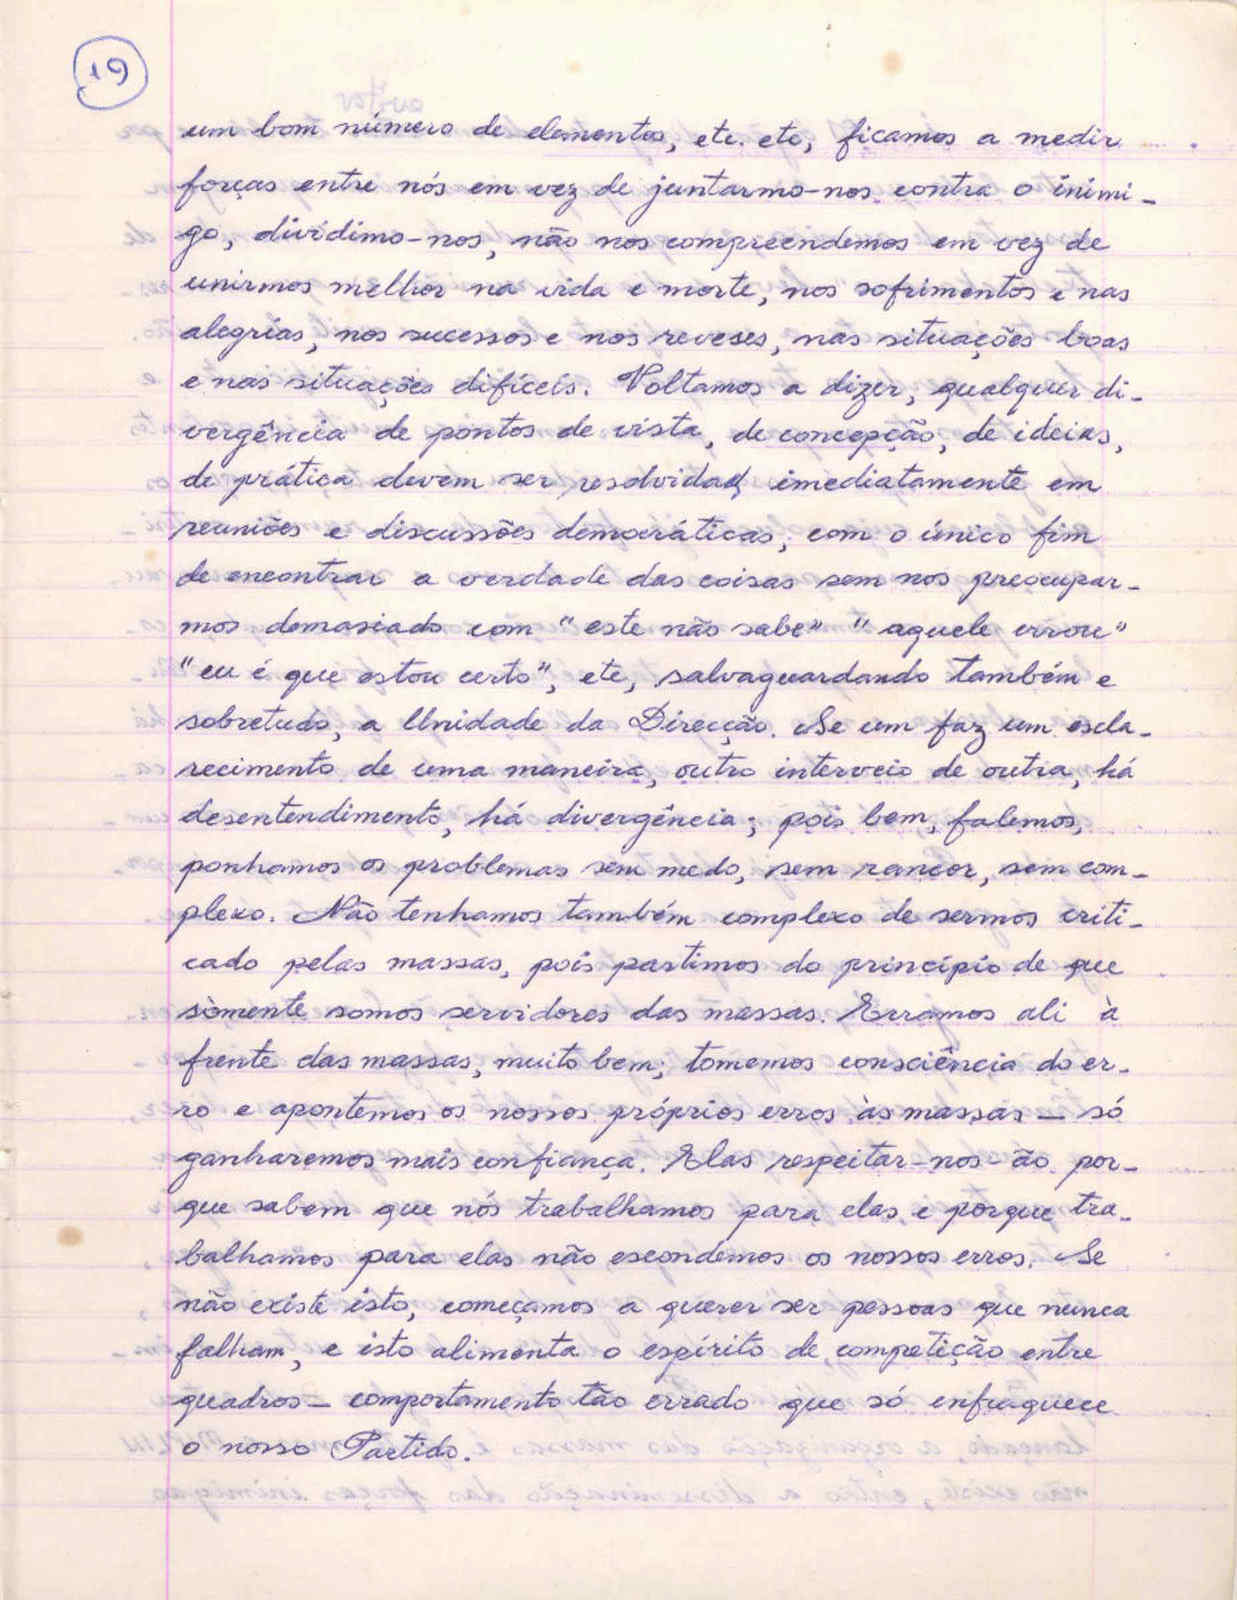 19
um bom número de elementos, etc. etc, ficamos a medir
forças entre nós em vez de juntarmo-nos contra o inimi-
go, dividimo-nos, não nos compreendemos em vez de
unirmos melhor na vida e morte, nos sofrimentos e nas
alegrias, nos sucessos e nos reveses, nas situações boas
e nas situações difíceis. Voltamos a dizer, qualquer di-
vergência de pontos de vista, de concepção, de ideias,
de prática devem ser resolvidas imediatamente em
reuniões e discussões democráticas, com o único fim
de encontrar a verdade das coisas sem nos preocupar-
mos demasiado com "este não sabe" "aquele errou"
"eu é que estou certo", etc, salvaguardando também e
sobretudo, a Unidade da Direcção. Se um faz um escla-
recimento de uma maneira, outro interveio de outra, há
desentendimento, há divergência; pois bem, falemos,
ponhamos os problemas sem medo, sem rancor, sem com-
plexo. Não tenhamos também complexo de sermos criti-
cado pelas massas, pois partimos do princípio de que
sòmente somos servidores das massas. Erramos ali à
frente das massas, muito bem; tomemos consciência do er-
ro e apontemos os nossos próprios erros às massas — só
ganharemos mais confiança. Elas respeitar-nos-ão por-
que sabem que nós trabalhamos para elas e porque tra-
balhamos para elas não escondemos os nossos erros. Se
não existe isto, começamos a querer ser pessoas que nunca
falham, e isto alimenta o espírito de competição entre
quadros — comportamento tão errado que só enfraquece
o nosso Partido.